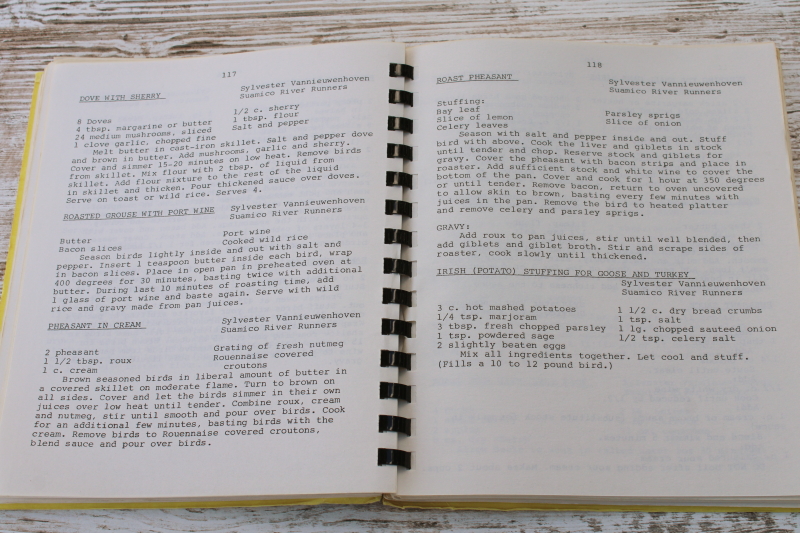 117
DOVE WITH SHERRY Sylvester Vannieuwenhoven
Suamico River Runners
8 Doves 1/2 c. sherry
4 tbsp. margarine or butter 1 tbsp. flour
24 medium mushrooms, sliced Salt and pepper
1 clove garlic, chopped fine
Melt butter in cast-iron skillet. Salt and pepper dove
and brown in butter. Add mushrooms, garlic and sherry.
Cover and simer 15-20 minutes on low heat. Remove birds
from skillet. Mix flour with 2 tbsp. of liquid from
skillet. Add flour mixture to the rest of the liquid
in skillet and thicken. Pour thickened sauce over doves.
Serve on toast or wild rice. Serves 4.
ROASTED GROUSE WITH PORT WINE Sylvester Vannieuwenhoven
Suamico River Runners
Butter Port wine
Bacon slices Cooked wild rice
Season birds lightly inside and out with salt and
pepper. Insert 1 teaspoon butter inside each bird, wrap
in bacon slices. Place in open pan in preheated oven at
400 degrees for 30 minutes, basting twice with additional
butter. During last 10 minutes of roasting time, add
1 glass of port wine and baste again. Serve with wild
rice and gravy made from pan juices.
PHEASANT IN CREAM Sylvester Vannieuwenhoven
Suamico River Runners
2 pheasant Grating of fresh nutmeg
1 1/2 tbsp. roux Rouennaise covered
1 c. cream croutons
Brown seasoned birds in liberal amount of butter in
a covered skillet on moderate flame. Turn to brown on
all sides. Cover and let the birds simmer in their own
juices over low heat until tender. Combine roux, cream
and nutmeg, stir until smooth and pour over birds. Cook
for an additional few minutes, basting birds with the
cream. Remove birds to Rouennaise covered croutons,
blend sauce and pour over birds.
118
ROAST PHEASANT Sylvester Vannieuwenhoven
Suamico River Runners
Stuffing:
Bay leaf Parsley sprigs
Slice of lemon Slice of onion
Celery leaves
Season with salt and pepper inside and out. Stuff
bird with above. Cook the liver and giblets in stock
until tender and chop. Reserve stock and giblets for
gravy. Cover the pheasant with bacon strips and place in
roaster. Add sufficient stock and white wine to cover the
bottom of the pan. Cover and cook for 1 hour at 350 degrees
or until tender. Remove bacon, return to oven uncovered
to allow skin to brown, basting every few minutes with
juices in the pan. Remove the bird to heated platter
and remove celery and parsley sprigs.
GRAVY:
Add roux to pan juices, stir until well blended, then
add giblets and giblet broth. Stir and scrape sides of
roaster, cook slowly until thickened.
IRISH (POTATO) STUFFING FOR GOOSE AND TURKEY
Sylvester Vannieuwenhoven
Suamico River Runners
3 c. hot mashed potatoes 1 1/2 c. dry bread crumbs
1/4 tsp. marjoram 1 tsp. salt
3 tbsp. fresh chopped parsley 1 lg. chopped sauteed onion
1 tsp. powdered sage 1/2 tsp. celery salt
2 slightly beaten eggs
Mix all ingredients together. Let cool and stuff.
(Fills a 10 to 12 pound bird.)